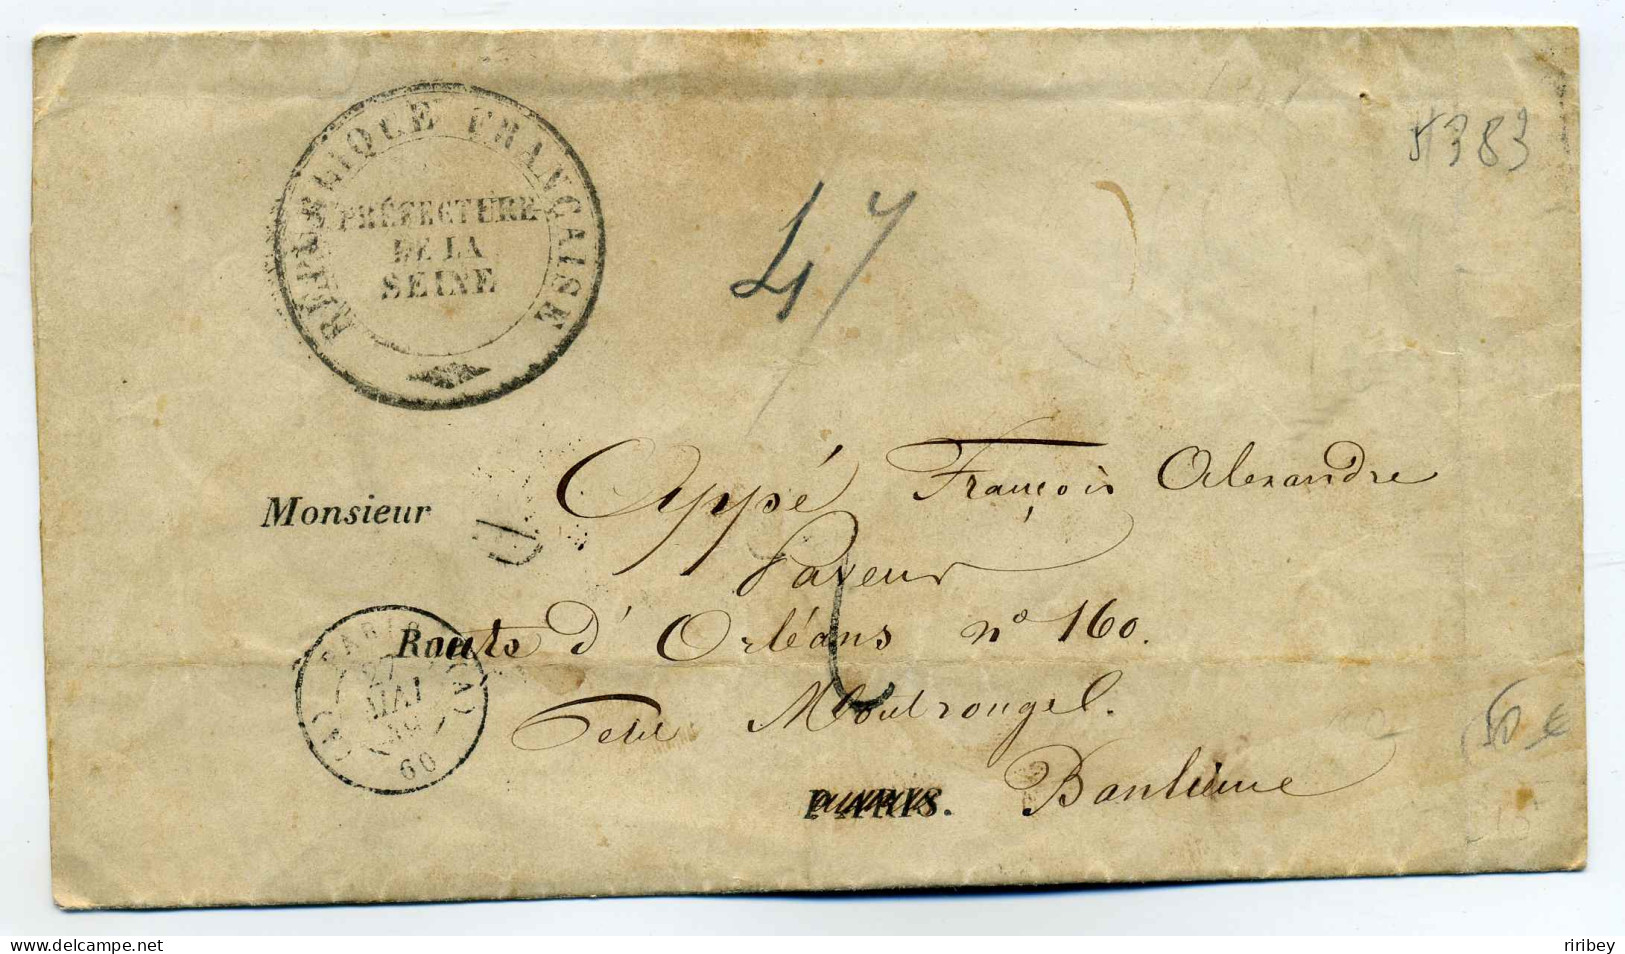 RÉPUBLIQUE FRANÇAISE
PRÉFECTURE
DE LA
SEINE
47
383
Monsieur Appé François Alexandre
Paveur
Route d'Orléans n° 160.
Petit Montrouge.
PARIS. Banlieue
PARIS
27
MAI
60
2
50 €
delcampe.net
riribey